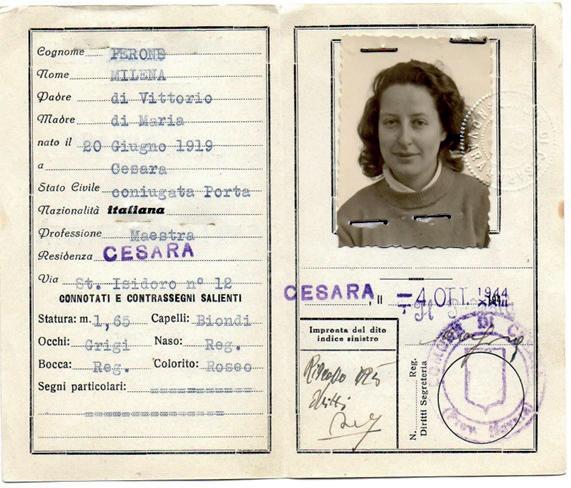 Cognome PERONE
Nome MILENA
Padre di Vittorio
Madre di Maria
nato il 20 Giugno 1919
a Cesara
Stato Civile coniugata Porta
Nazionalità italiana
Professione Maestra
Residenza CESARA
Via St. Isidoro n° 12
CONNOTATI E CONTRASSEGNI SALIENTI
Statura: m. 1,65 Capelli: Biondi
Occhi: Grigi Naso: Reg.
Bocca: Reg. Colorito: Roseo
Segni particolari: ============
================
CESARA, li = 4 OTT. 1944
Impronta del dito
indice sinistro
N. Reg.
Diritti Segreteria
COMUNE DI